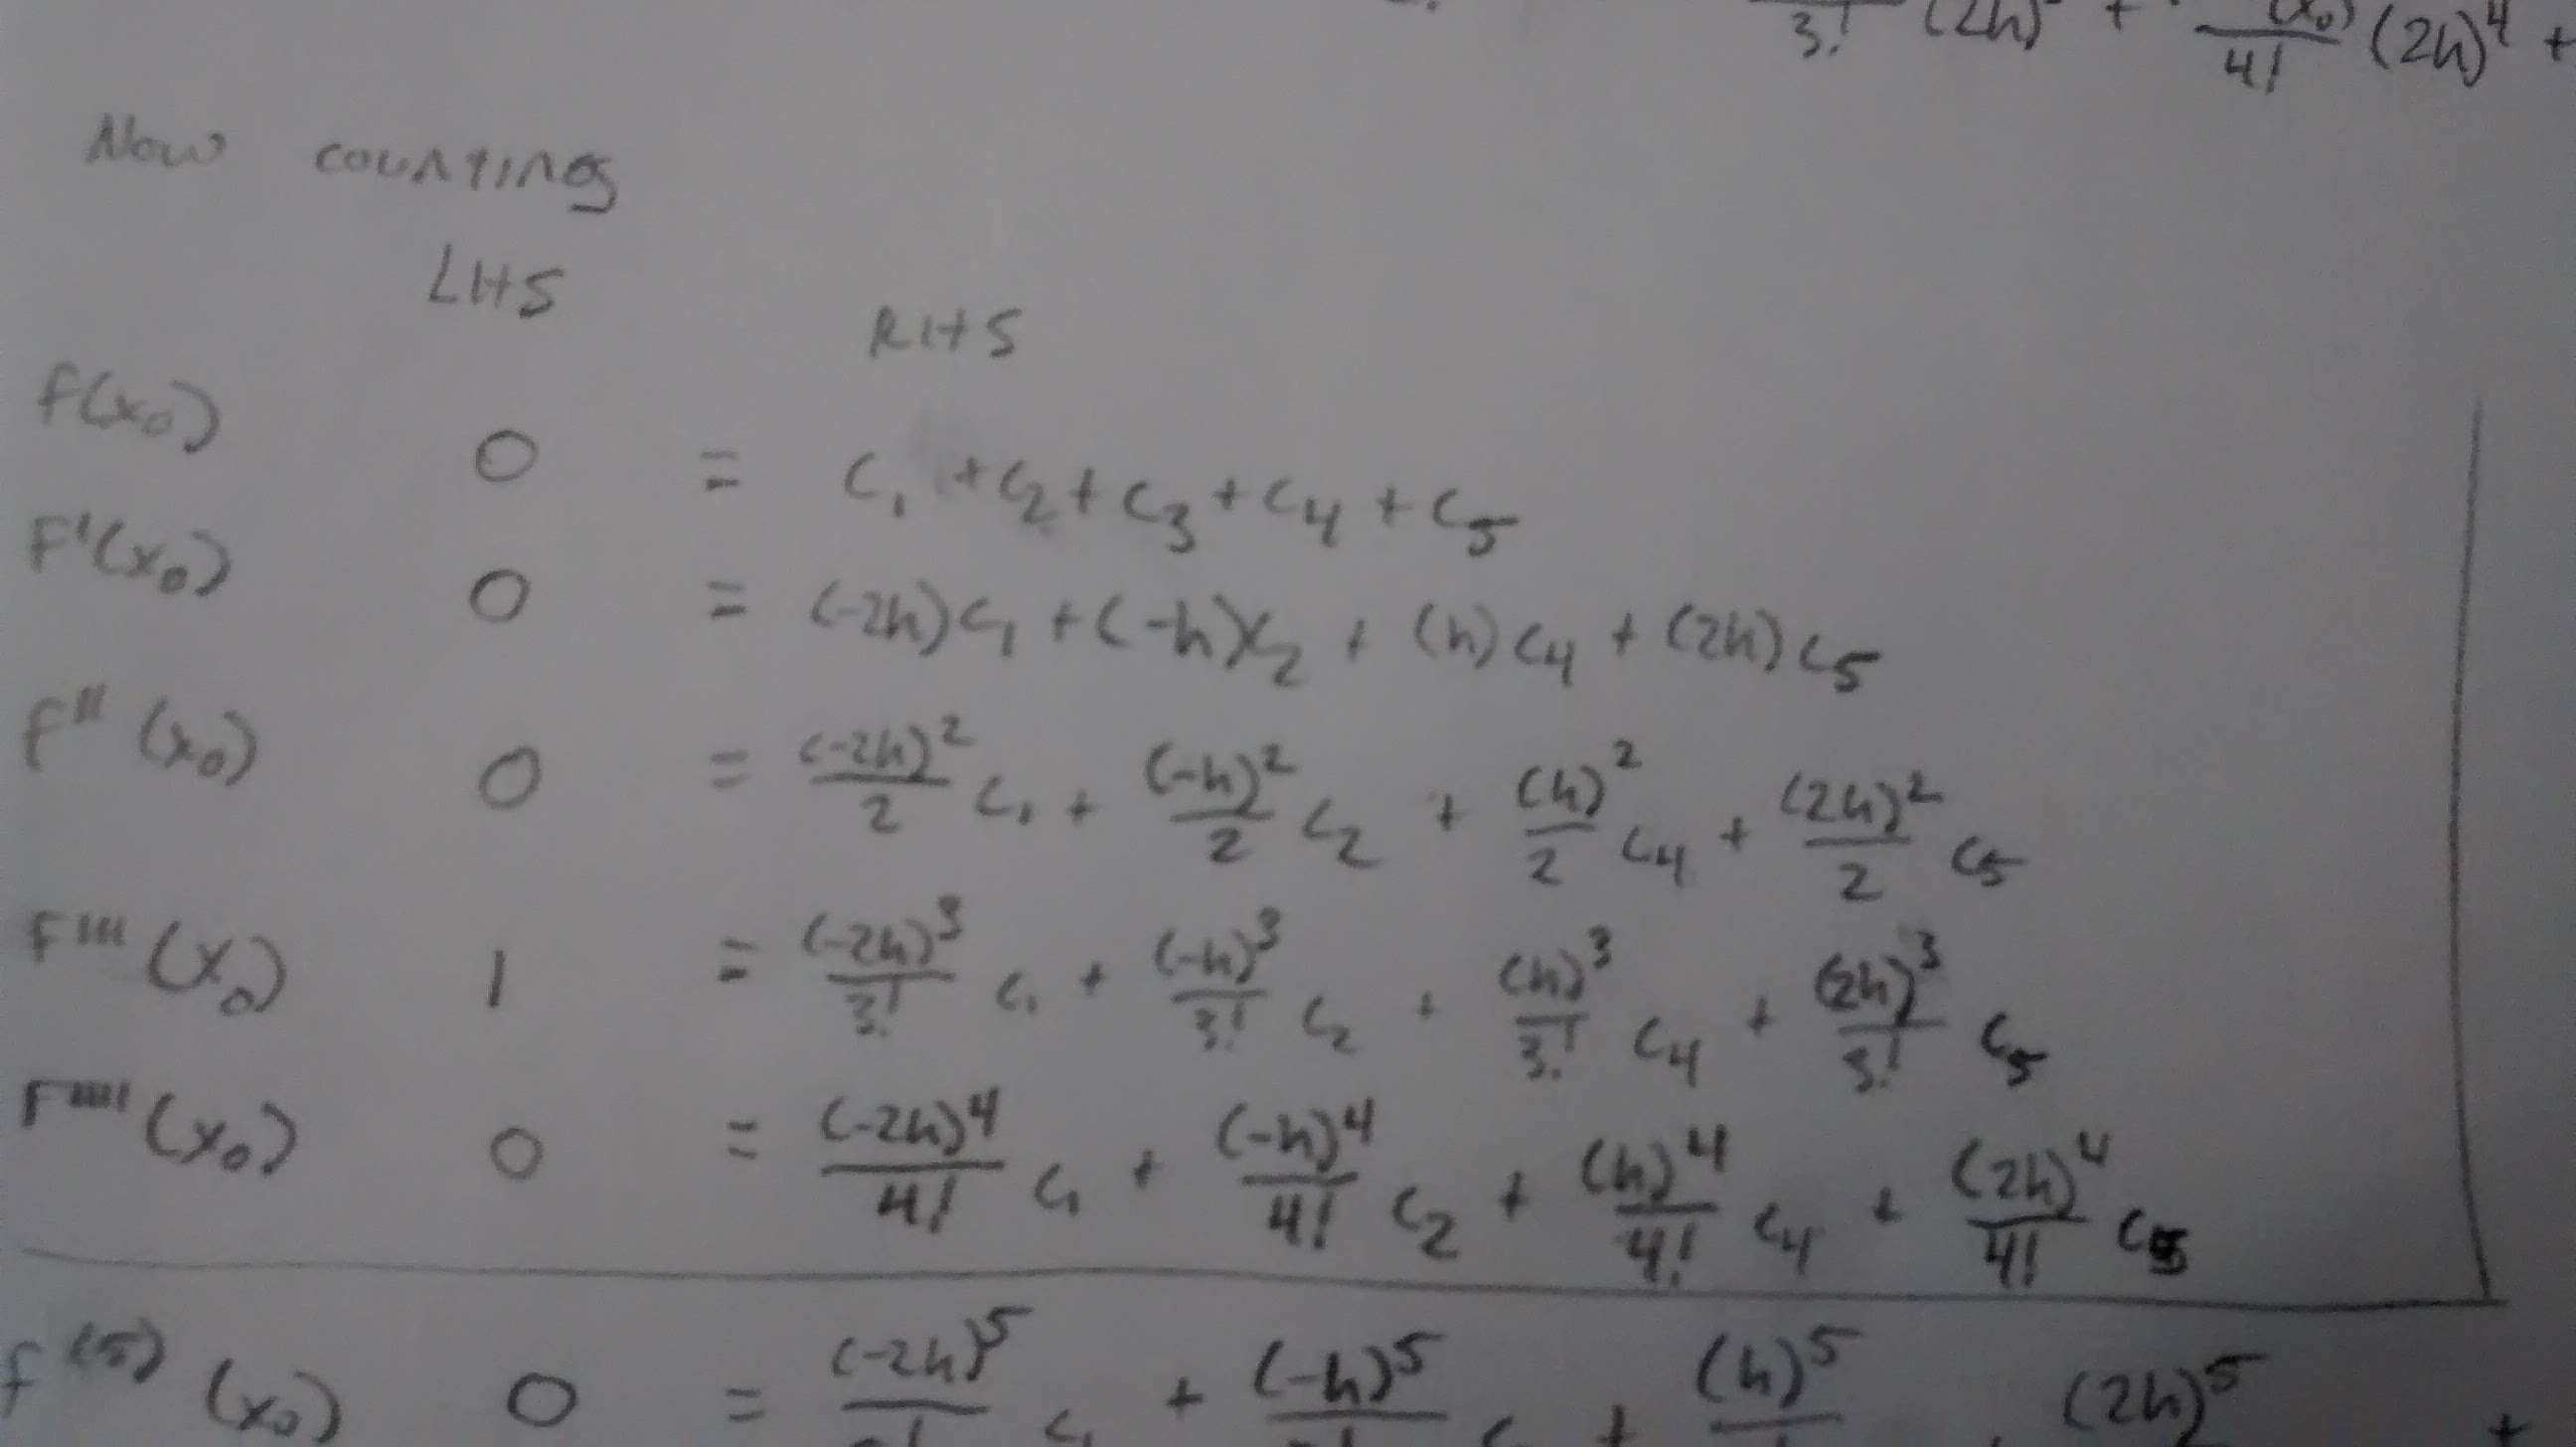 3! (2h) + (x₀)/4! (2h)⁴ +
Now counting
LHS
RHS
f(x₀) 0 = c₁ + c₂ + c₃ + c₄ + c₅
F'(x₀) 0 = (-2h)c₁ + (-h)c₂ + (h)c₄ + (2h)c₅
f''(x₀) 0 = (-2h)²/2 c₁ + (-h)²/2 c₂ + (h)²/2 c₄ + (2h)²/2 c₅
F'''(x₀) 1 = (-2h)³/3! c₁ + (-h)³/3! c₂ + (h)³/3! c₄ + (2h)³/3! c₅
F''''(x₀) 0 = (-2h)⁴/4! c₁ + (-h)⁴/4! c₂ + (h)⁴/4! c₄ + (2h)⁴/4! c₅
f⁽⁵⁾(x₀) 0 = (-2h)⁵ c₁ + (-h)⁵ c + (h)⁵ (2h)⁵ +